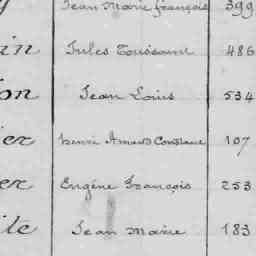 Jean Marie françois 399
in Jules Toussaint 486
on Jean Louis 534
ier henri Amand Constant 107
er Eugène François 253
ite Jean Marie 183